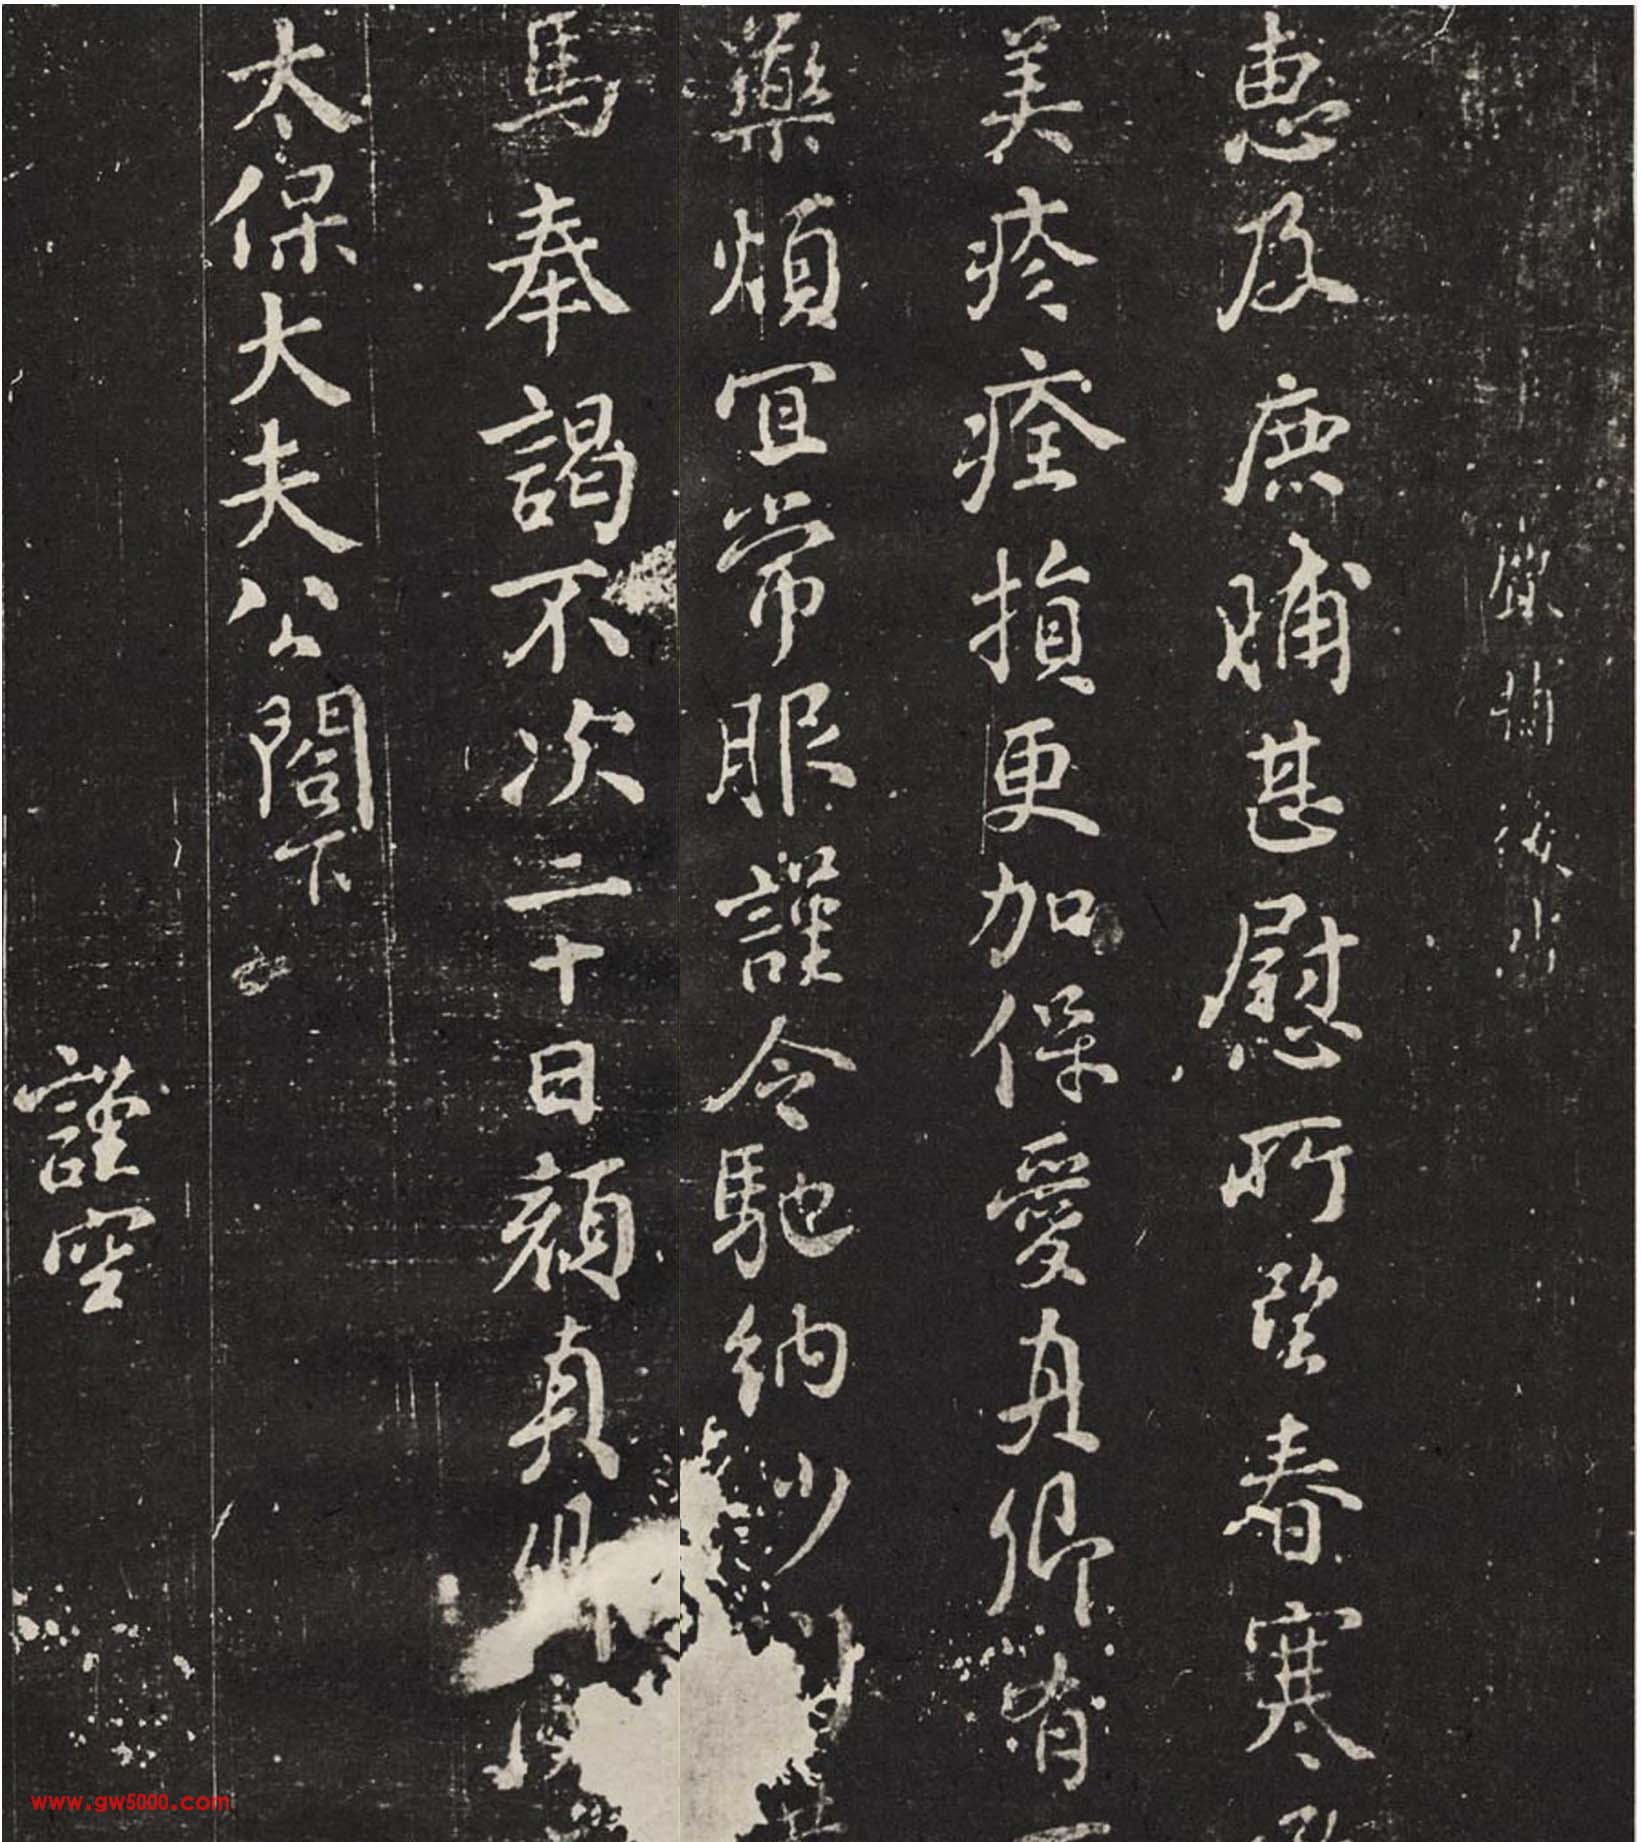 惠及鹿脯甚慰所望春寒
美疹痊損更加保愛真卿有
藥煩宜常服謹令馳納少
馬奉謁不次二十日顏真卿
太保大夫公閤下
謹空
www.gw5000.com